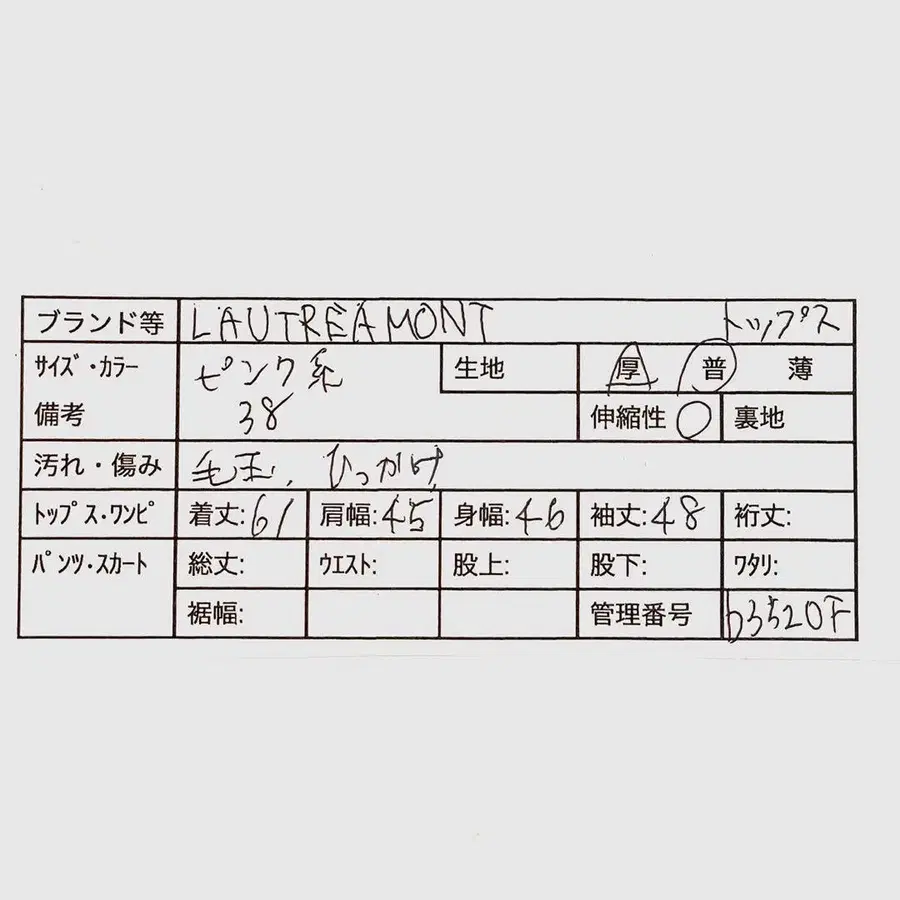 ブランド等 LAUTREAMONT トップス
サイズ・カラー ピンク系 生地 厚 普 薄
備考 38 伸縮性 ○ 裏地
汚れ・傷み 毛玉、ひっかけ
トップス・ワンピ 着丈:61 肩幅:45 身幅:46 袖丈:48 裄丈:
パンツ・スカート 総丈: ウエスト: 股上: 股下: ワタリ:
裾幅: 管理番号 b3520F